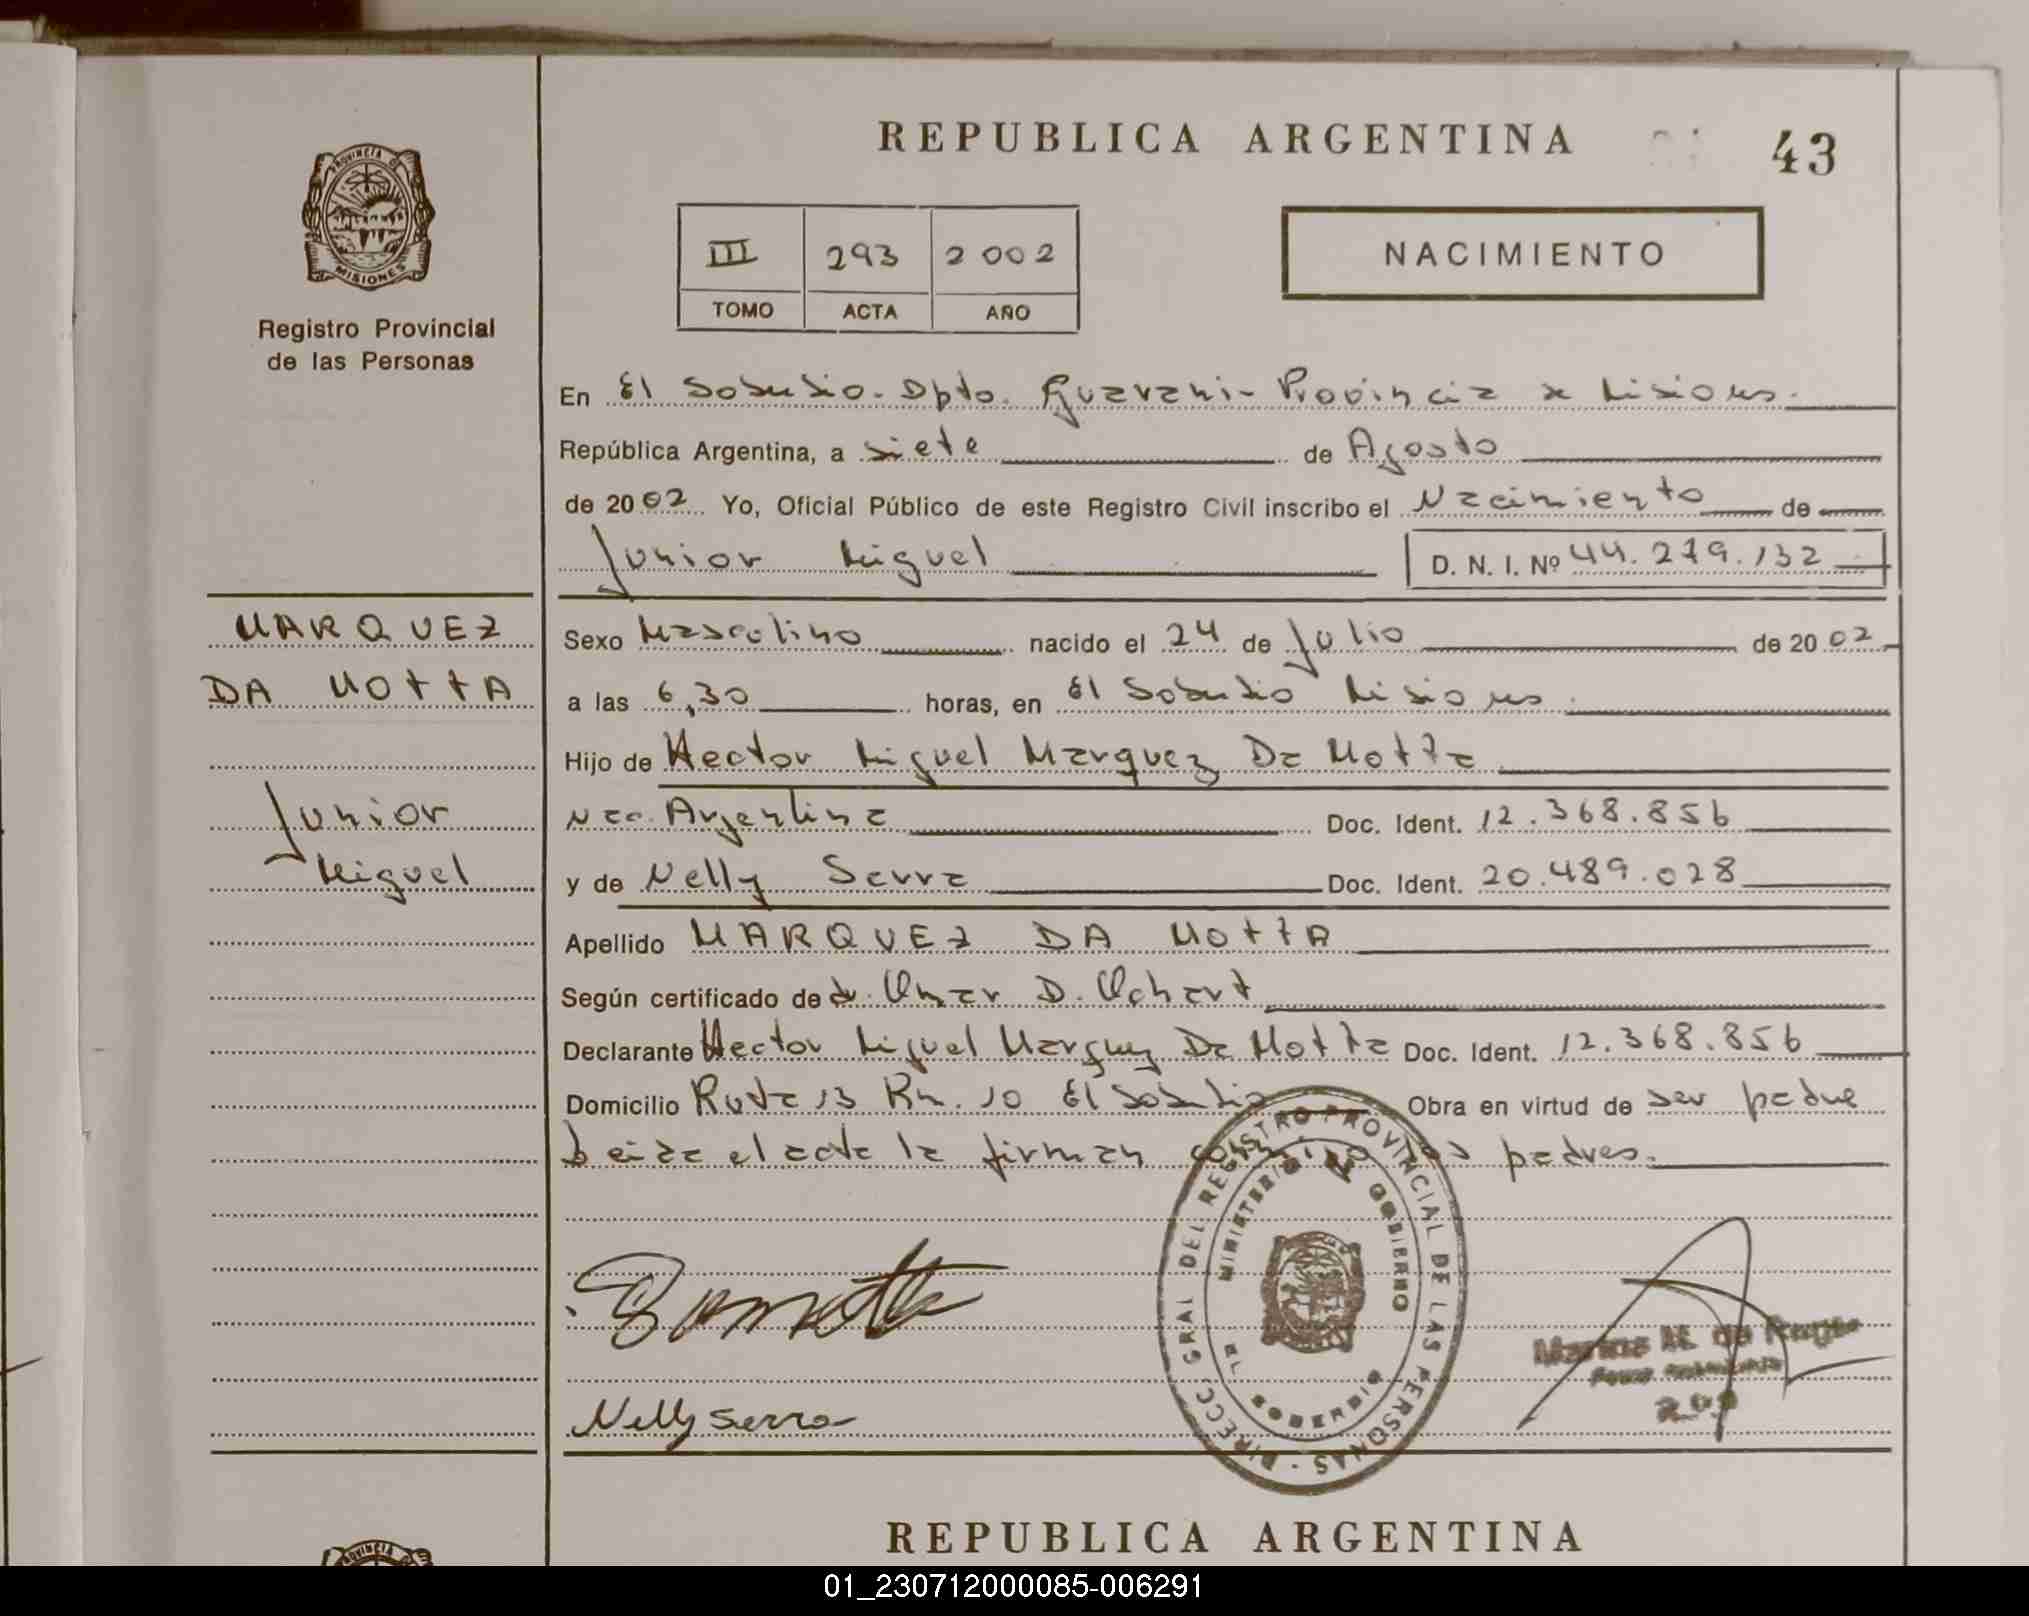 REPUBLICA ARGENTINA
43
PROVINCIA DE
MISIONES
Registro Provincial
de las Personas
III 293 2002
TOMO ACTA AÑO
NACIMIENTO
En El Soberbio - Dpto. Guarani - Provincia de Misiones.
República Argentina, a siete de Agosto
de 2002 Yo, Oficial Público de este Registro Civil inscribo el Nacimiento de
Junior Miguel D. N. I. Nº 44.279.132
MARQUEZ
DA MOTTA
Junior
Miguel
Sexo Masculino nacido el 24 de Julio de 2002
a las 6,30 horas, en El Soberbio Misiones.
Hijo de Hector Miguel Marquez Da Motta
Nac. Argentina Doc. Ident. 12.368.856
y de Nelly Serra Doc. Ident. 20.489.028
Apellido MARQUEZ DA MOTTA
Según certificado de dr. Omar D. Ochart
Declarante Hector Miguel Marquez Da Motta Doc. Ident. 12.368.856
Domicilio Ruta 13 Km. 10 El Soberbio Obra en virtud de ser padre
Leida el acta la firman conmigo los padres.
DIRECC. GRAL DEL REGISTRO PROVINCIAL DE LAS PERSONAS
MINISTERIO DE GOBIERNO
EL SOBERBIO
Nelly Serra
REPUBLICA ARGENTINA
PROVINCIA
01_230712000085-006291